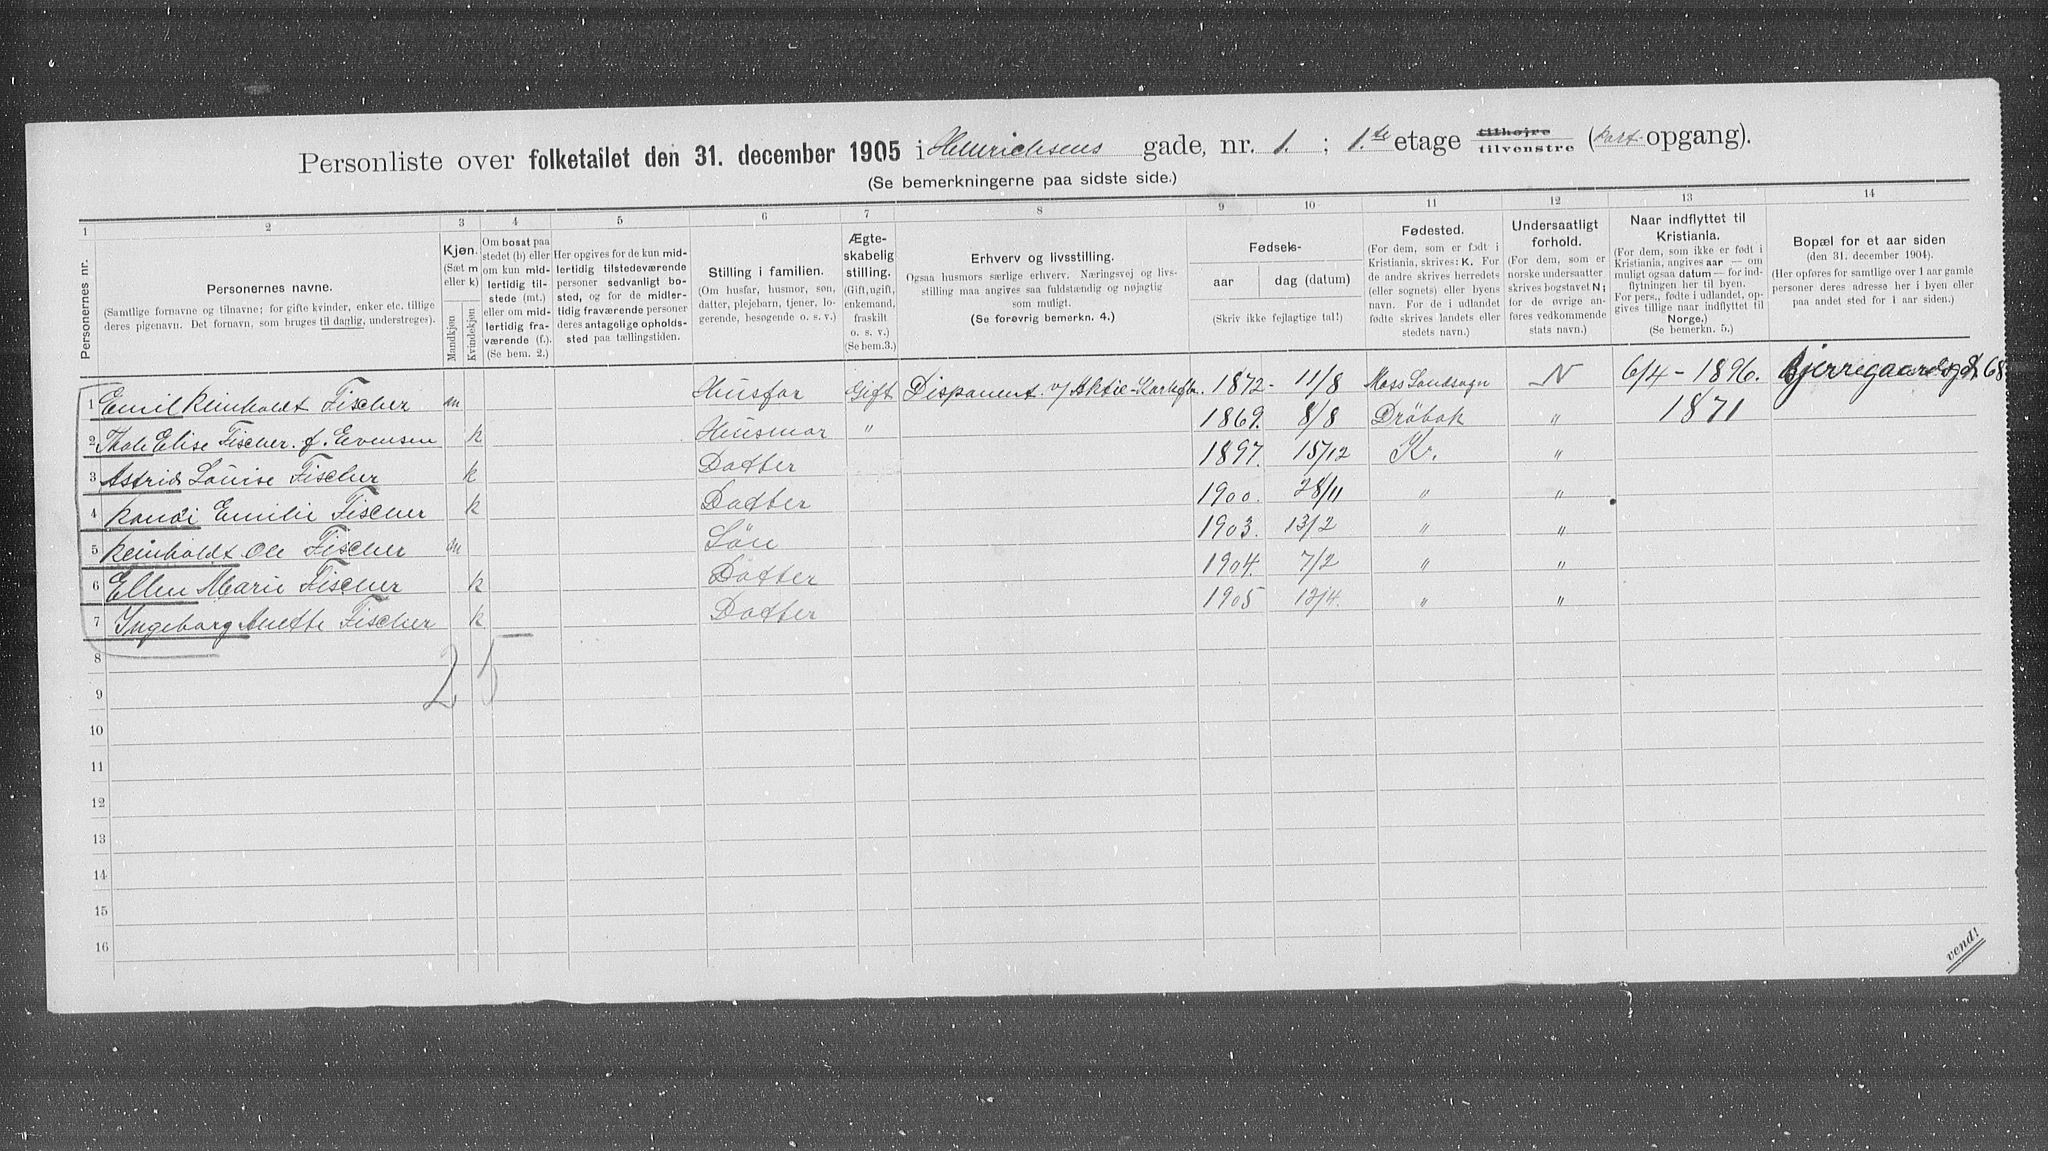 Personliste over folketallet den 31. december 1905 i Hinrichsens gade, nr. 1. ; 1.ste etage tilhøjre tilvenstre (Port opgang).
(Se bemerkningerne paa sidste side.)
1 2 3 4 5 6 7 8 9 10 11 12 13 14
Personernes nr.
Personernes navne.
(Samtlige fornavne og tilnavne; for gifte kvinder, enker etc. tillige
deres pigenavn. Det fornavn, som bruges til daglig, understreges).
Kjøn.
(Sæt m
eller k)
Mandkjøn
Kvindekjøn
Om bosat paa
stedet (b) eller
om kun mid-
lertidig til-
stede (mt.)
eller om mid-
lertidig fra-
værende (f.).
(Se bem. 2.)
Her opgives for de kun mid-
lertidig tilstedeværende
personer sedvanligt bo-
sted, og for de midler-
tidig fraværende personer
deres antagelige opholds-
sted paa tællingstiden.
Stilling i familien.
(Om husfar, husmor, søn,
datter, plejebarn, tjener, lo-
gerende, besøgende o. s. v.)
Ægte-
skabelig
stilling.
(Gift, ugift,
enkemand,
fraskilt
o. s. v.)
(Se bem.3.)
Erhverv og livsstilling.
Ogsaa husmors særlige erhverv. Næringsvej og livs-
stilling maa angives saa fuldstændig og nøjagtig
som muligt.
(Se forøvrig bemerkn. 4.)
Fødsels-
aar dag (datum)
(Skriv ikke fejlagtige tal!)
Fødested.
(For dem, som er født i
Kristiania, skrives: K. For
de andre skrives herredets
(eller sognets) eller byens
navn. For de i udlandet
fødte skrives landets eller
stedets navn.)
Undersaatligt
forhold.
(For dem, som er
norske undersaatter
skrives bogstavet N;
for de øvrige an-
føres vedkommende
stats navn.)
Naar indflyttet til
Kristiania.
(For dem, som ikke er født i
Kristiania, angives aar — om
muligt ogsaa datum — for ind-
flytningen her til byen.
For pers., fødte i udlandet, op-
gives tillige naar indflyttet til
Norge.)
(Se bemerkn. 5.)
Bopæl for et aar siden
(den 31. december 1904).
(Her opføres for samtlige over 1 aar gamle
personer deres adresse her i byen eller
paa andet sted for 1 aar siden.)
1 Emil Reinholdt Fischer m Husfar Gift Disponent v/ Aktie- 1872- 11/8 Moss Landsogn N 6/4 - 1896. Bjerregaardsgd. 68
2 Thale Elise Fischer. f. Evensen k Husmor " 1869. 8/8 Drøbak " 1871
3 Astrid Louise Fischer k Datter 1897. 15/12 Kr. "
4 Randi Emilie Fischer k Datter 1900. 28/11 " "
5 Reinholdt Ole Fischer m Søn 1903. 13/2 " "
6 Ellen Marie Fischer k Datter 1904. 7/2 " "
7 Ingeborg Anette Fischer k Datter 1905 13/4. " "
8
2 5
9
10
11
12
13
14
15
16
vend!